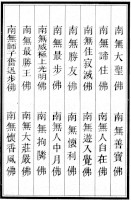 南無大聖佛
南無善寶佛
南無諦住佛
南無人自在佛
南無住寂滅佛
南無遊入覺佛
南無勝友佛
南無懷利佛
南無最步佛
南無入中月佛
南無威極上光明佛
南無拘隣佛
南無最勝王佛
南無大莊嚴佛
南無師子奮迅步佛
南無懷香風佛